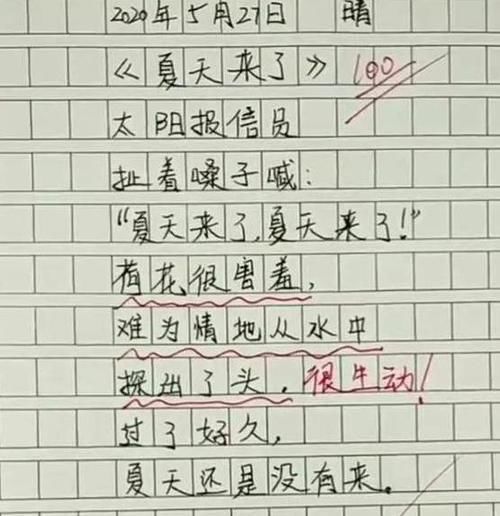 2020年5月27日 晴
《夏天来了》 100
太阳报信员
扯着嗓子喊：
“夏天来了,夏天来了!”
荷花很害羞,
难为情地从水中
探出了头. 很生动!
过了好久,
夏天还是没有来.